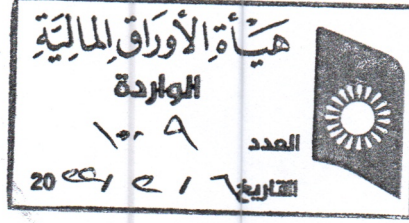 هَيْأَةِ الأَوْرَاقِ المَالِيَّةِ
الواردة
العدد ١٠٠٩
التاريخ ٦ / ٢ /
20